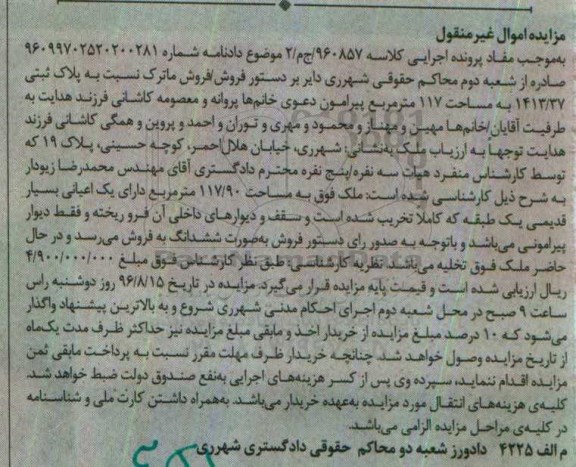 مزایده اموال غیر منقول
به‌موجب مفاد پرونده اجرایی کلاسه ۹۶۰۸۵۷/ج‌م/۲ موضوع دادنامه شماره ۹۶۰۹۹۷۰۲۵۲۰۲۰۰۲۸۱
صادره از شعبه دوم محاکم حقوقی شهرری دایر بر دستور فروش/فروش ماترک نسبت به پلاک ثبتی
۱۴۱۳/۳۷ به مساحت ۱۱۷ مترمربع پیرامون دعوی خانم‌ها پروانه و معصومه کاشانی فرزند هدایت به
طرفیت آقایان/خانم‌ها مهین و مهناز و محمود و مهری و توران و احمد و پروین و همگی کاشانی فرزند
هدایت توجها به ارزیاب ملک به‌نشانی: شهرری، خیابان هلال‌احمر، کوچه حسینی، پلاک ۱۹ که
توسط کارشناس منفرد هیات سه نفره/پنج نفره محترم دادگستری آقای مهندس محمدرضا زیودار
به شرح ذیل کارشناسی شده است: ملک فوق به مساحت ۱۱۷/۹۰ مترمربع دارای یک اعیانی بسیار
قدیمی یک طبقه که کاملا تخریب شده است و سقف و دیوارهای داخلی آن فرو ریخته و فقط دیوار
پیرامونی می‌باشد و باتوجه به صدور رای دستور فروش به‌صورت ششدانگ به فروش می‌رسد و در حال
حاضر ملک فوق تخلیه می‌باشد. نظریه کارشناسی: طبق نظر کارشناس فوق مبلغ ۴/۹۰۰/۰۰۰/۰۰۰
ریال ارزیابی شده است و قیمت پایه مزایده قرار می‌گیرد. مزایده در تاریخ ۹۶/۸/۱۵ روز دوشنبه راس
ساعت ۹ صبح در محل شعبه دوم اجرای احکام مدنی شهرری شروع و به بالاترین پیشنهاد واگذار
می‌شود که ۱۰ درصد مبلغ مزایده از خریدار اخذ و مابقی مبلغ مزایده نیز حداکثر ظرف مدت یک‌ماه
از تاریخ مزایده وصول خواهد شد. چنانچه خریدار ظرف مهلت مقرر نسبت به پرداخت مابقی ثمن
مزایده اقدام ننماید، سپرده وی پس از کسر هزینه‌های اجرایی به‌نفع صندوق دولت ضبط خواهد شد.
کلیه‌ی هزینه‌های انتقال مورد مزایده به‌عهده خریدار می‌باشد. به‌همراه داشتن کارت ملی و شناسنامه
در کلیه‌ی مراحل مزایده الزامی می‌باشد.
م الف ۴۲۲۵ دادورز شعبه دو محاکم حقوقی دادگستری شهرری